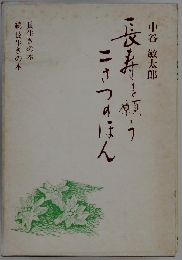 中谷敏太郎
長寿を願う
二さつのほん
長生きの本
続長生きの本